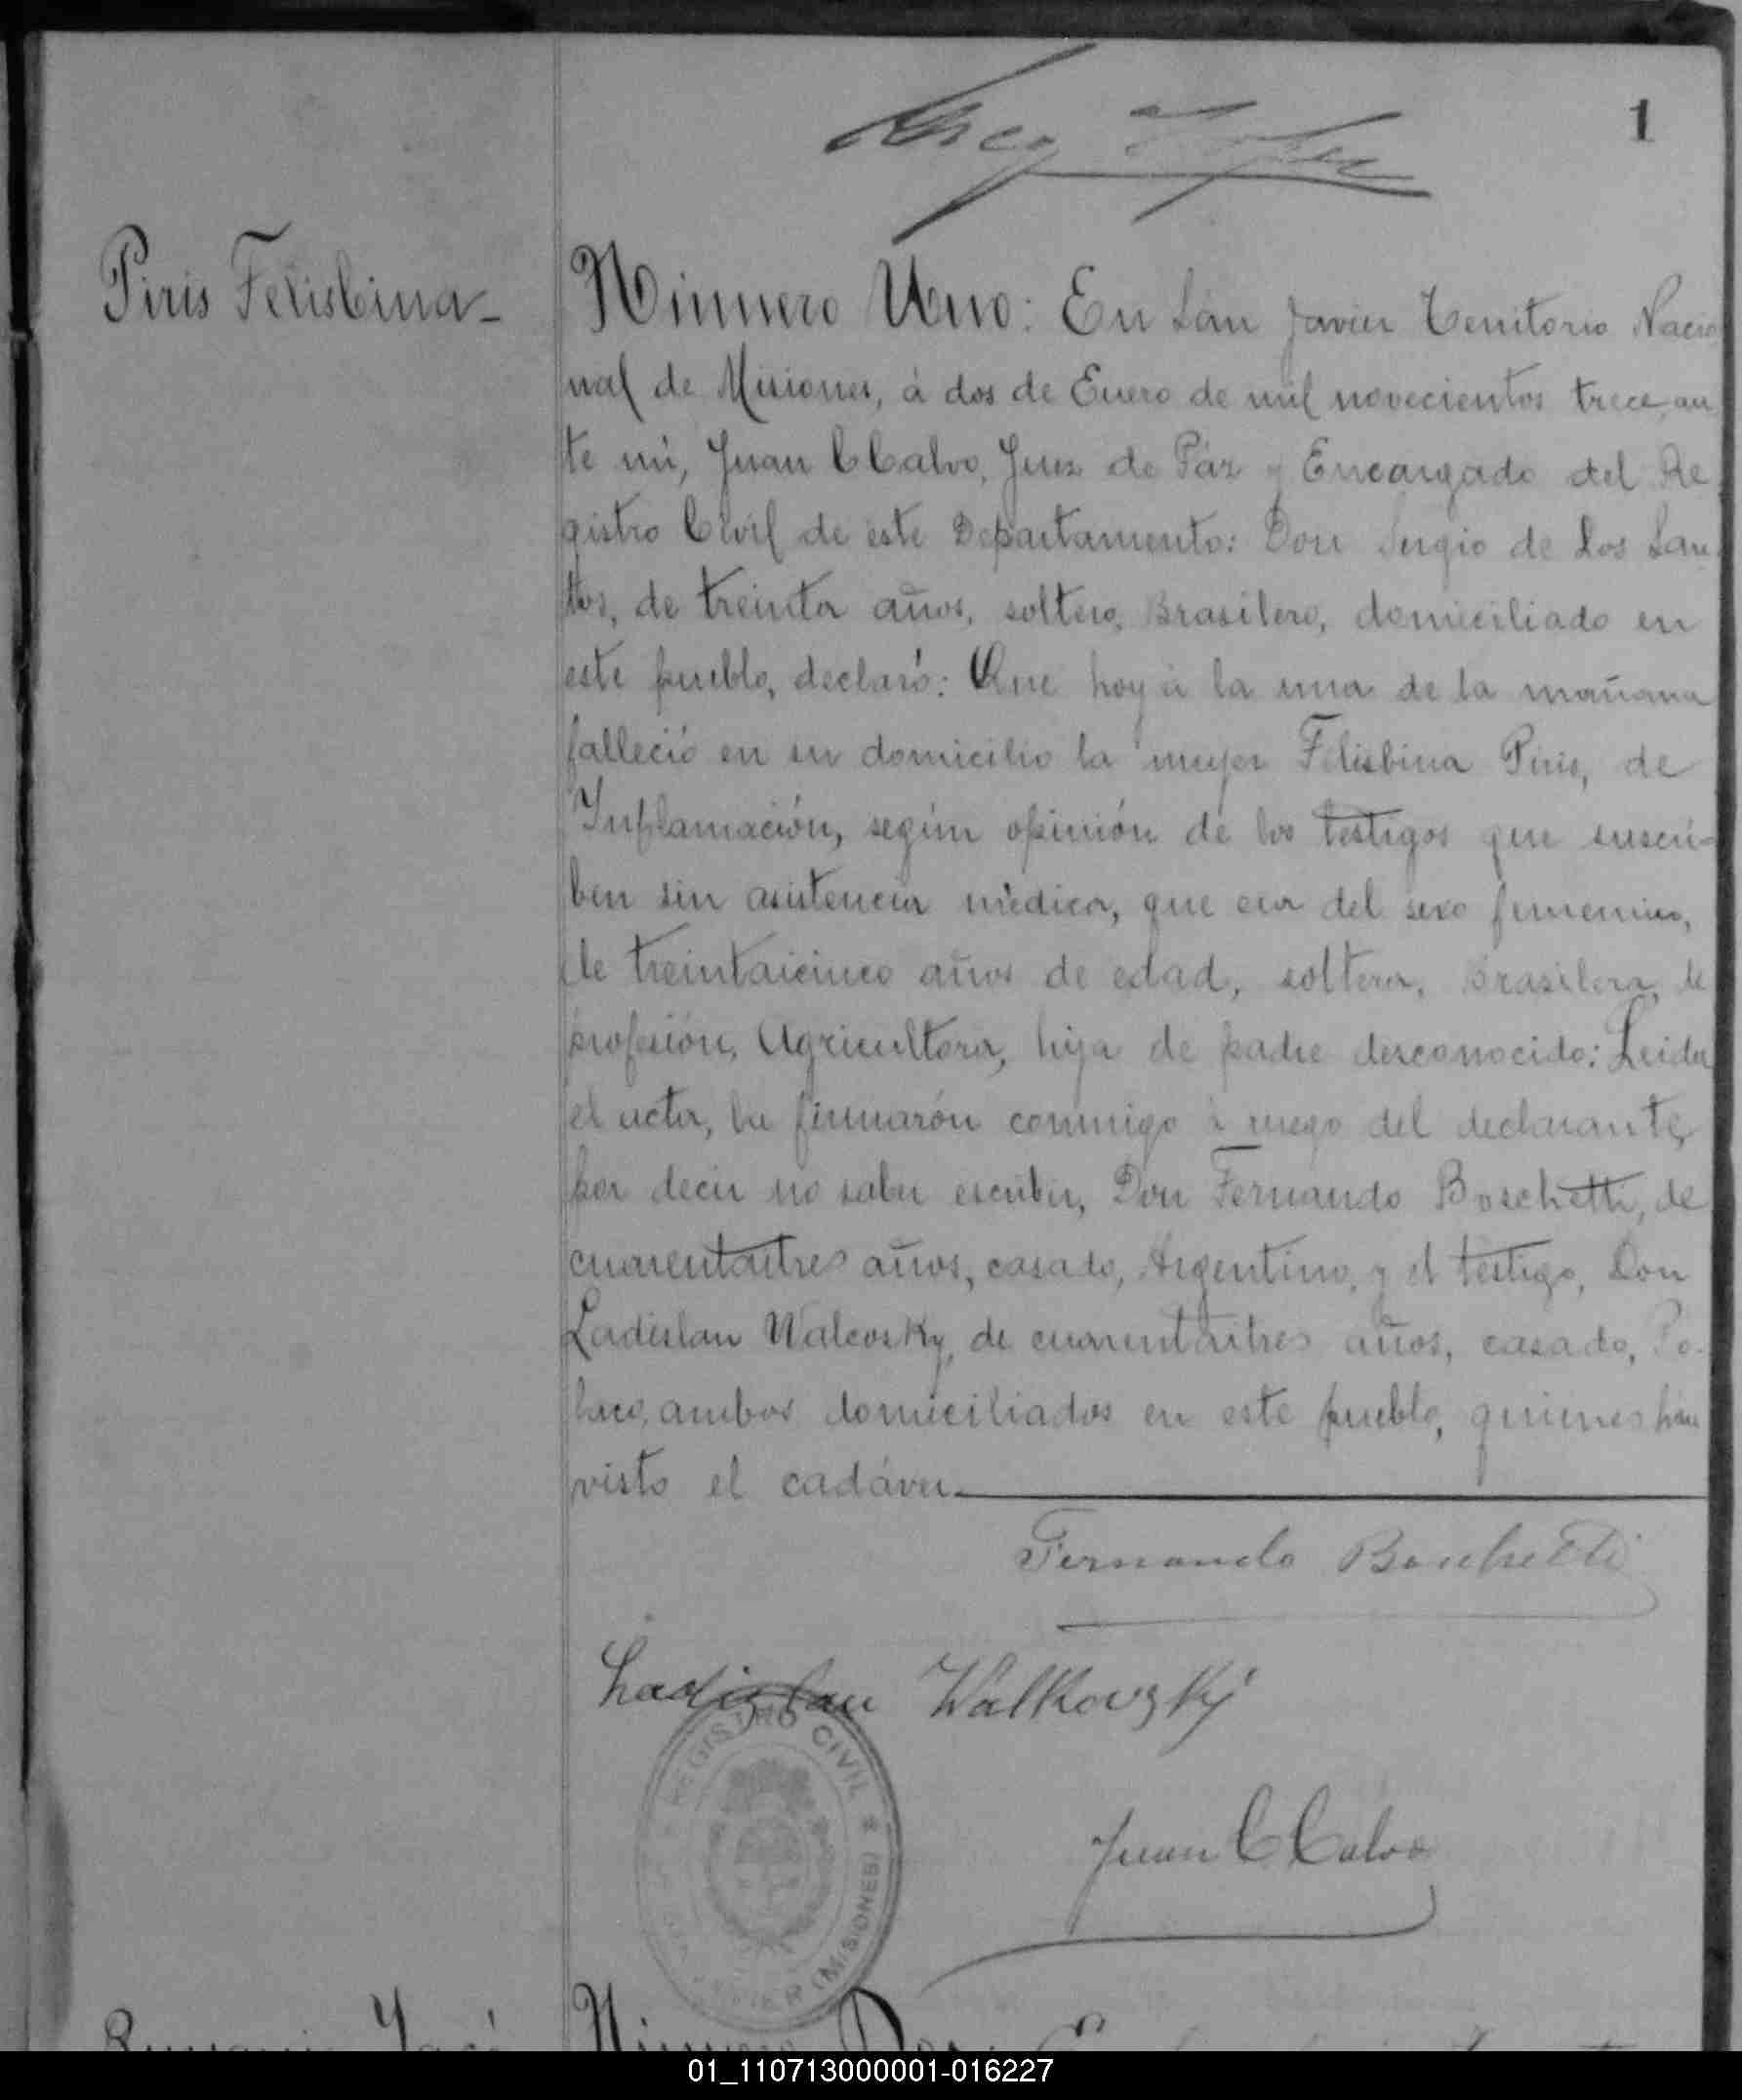 1
Piris Felisbina-
Número Uno: En San Javier Territorio Nacio
nal de Misiones, á dos de Enero de mil novecientos trece, an
te mi, Juan C Calvo, Juez de Páz y Encargado del Re
gistro Civil de este Departamento: Don Sergio de los San
tos, de treinta años, soltero, Brasilero, domiciliado en
este pueblo, declaró: Que hoy á la una de la mañana
falleció en su domicilio la mujer Felisbina Piris, de
Inflamación, según opinión de los testigos que suscri-
ben sin asistencia médica, que era del sexo femenino,
de treintaicinco años de edad, soltera, Brasilera, de
profesión, Agricultora, hija de padre desconocido: Leida
el acta, la firmarón conmigo á ruego del declarante,
por decir no saber escribir, Don Fernando Boschetti, de
cuarentaitres años, casado, Argentino, y el testigo, Don
Ladislau Walcosky, de cuarentaitres años, casado, Po-
laco, ambos domiciliados en este pueblo, quienes han
visto el cadáver.
Fernando Boschetti
Ladislau Walkovzky
REGISTRO CIVIL
JAVIER (MISIONES)
Juan C Calvo
Número Dos:
01_110713000001-016227